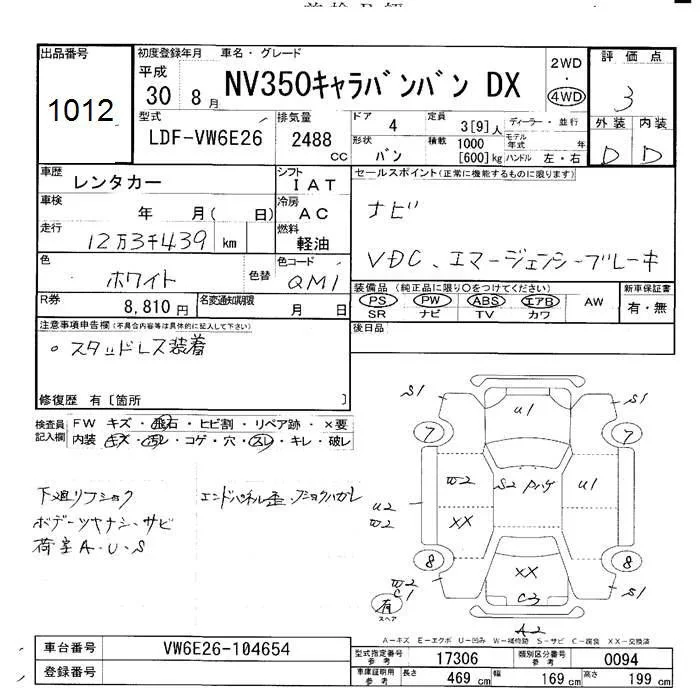 出品番号
1012
初度登録年月
平成
30 8月
車名・グレード
NV350キャラバンバン DX
2WD
・
4WD
評価点
3
外装 内装
D D
型式
LDF-VW6E26
排気量
2488
CC
ドア
4
定員
3[9]人
ディーラー・並行
形状
バン
積載
1000
[600]kg
モデル年式 年
ハンドル 左・右
車歴
レンタカー
シフト
IAT
セールスポイント(正常に機能するものに限ります)
ナビ
VDC、エマージェンシーブレーキ
車検
年 月( 日)
冷房
AC
走行
12万3千439 km
燃料
軽油
色
ホワイト
色替
色コード
QM1
装備品(純正品に限り○をつけてください)
PS PW ABS エアB AW
SR ナビ TV カワ
新車保証書
有・無
R券
8,810円
名変通知期限
月 日
後日品
注意事項申告欄(不具合内容等は具体的に記入して下さい)
○スタッドレス装着
修復歴 有[箇所 ]
検査員
記入欄
FW キズ・飛石・ヒビ割・リペア跡・×要
内装・キズ・汚レ・コゲ・穴・スレ・キレ・破レ
下廻リフショク
ボデーツヤナシ・サビ
荷室A・U・S
S1
S1
U1
7
7
W2
S2
U1
U2
W2
XX
8
8
XX
W2
C1
C3
S1
有
スペア
A2
A-キズ E-エクボ U-凹み W-補修跡 S-サビ C-腐食 XX-交換済
車台番号
VW6E26-104654
登録番号
型式指定番号
参考
17306
類別区分番号
参考
0094
車庫証明用
参考
長さ
469 cm
幅
169 cm
高さ
199 cm